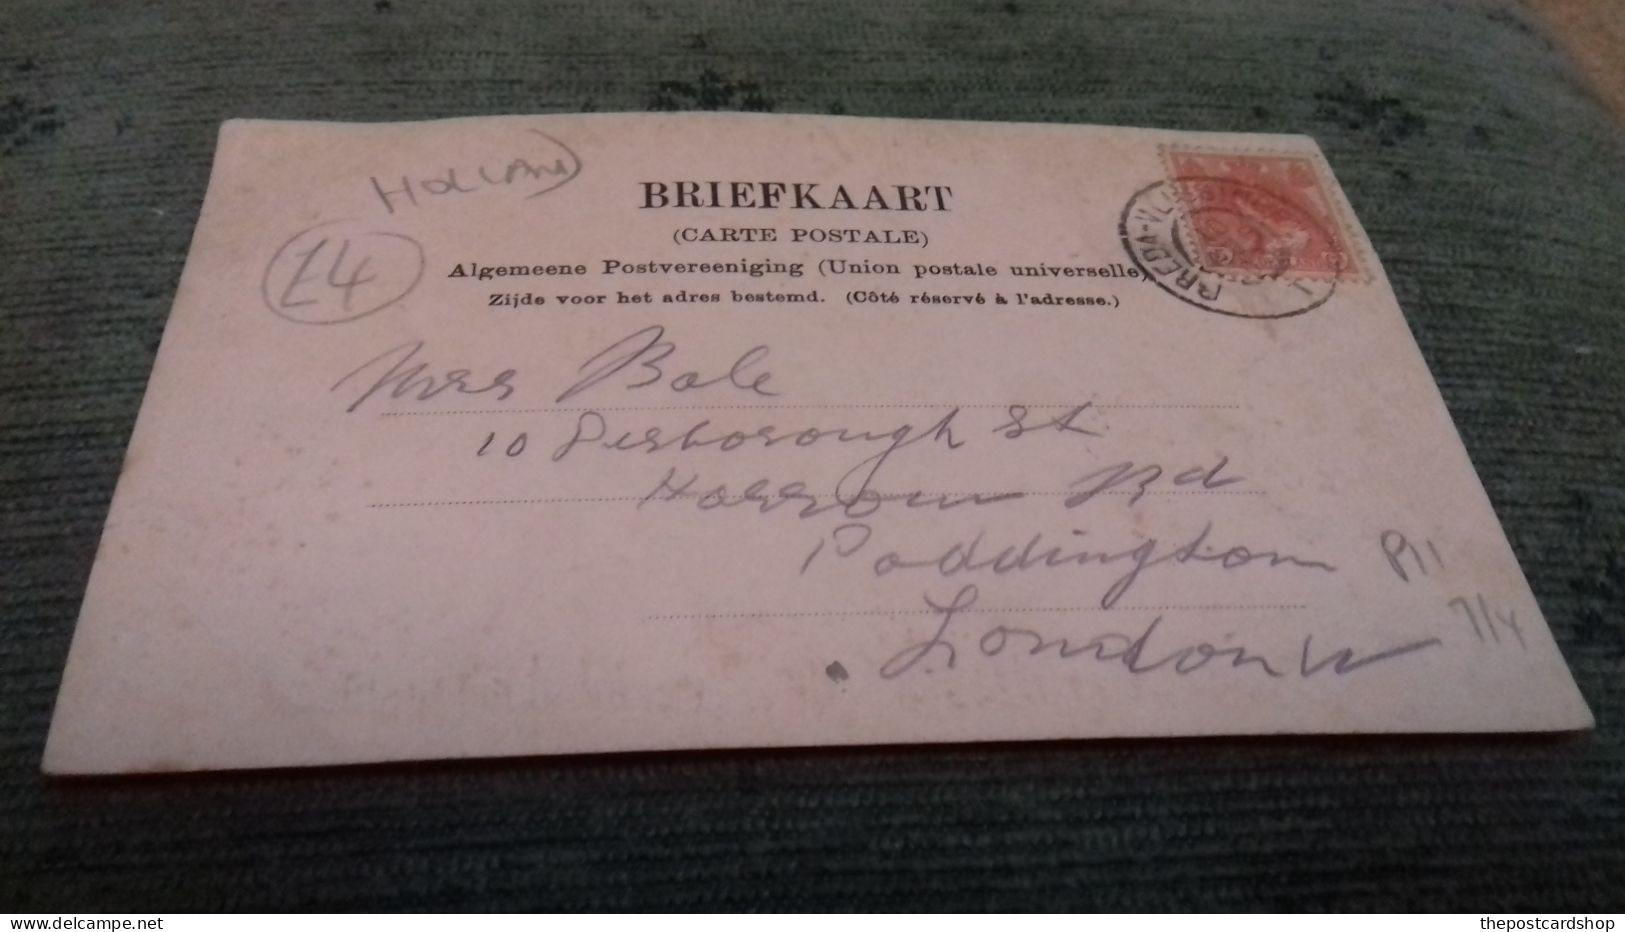 HOLLAND
£4
BRIEFKAART
(CARTE POSTALE)
Algemeene Postvereeniging (Union postale universelle)
Zijde voor het adres bestemd. (Côté réservé à l'adresse.)
BREDA-VLI
Mrs Bale
10 Desborough St
Harrow Rd
Paddington
London W
P11
7/4
thepostcardshop